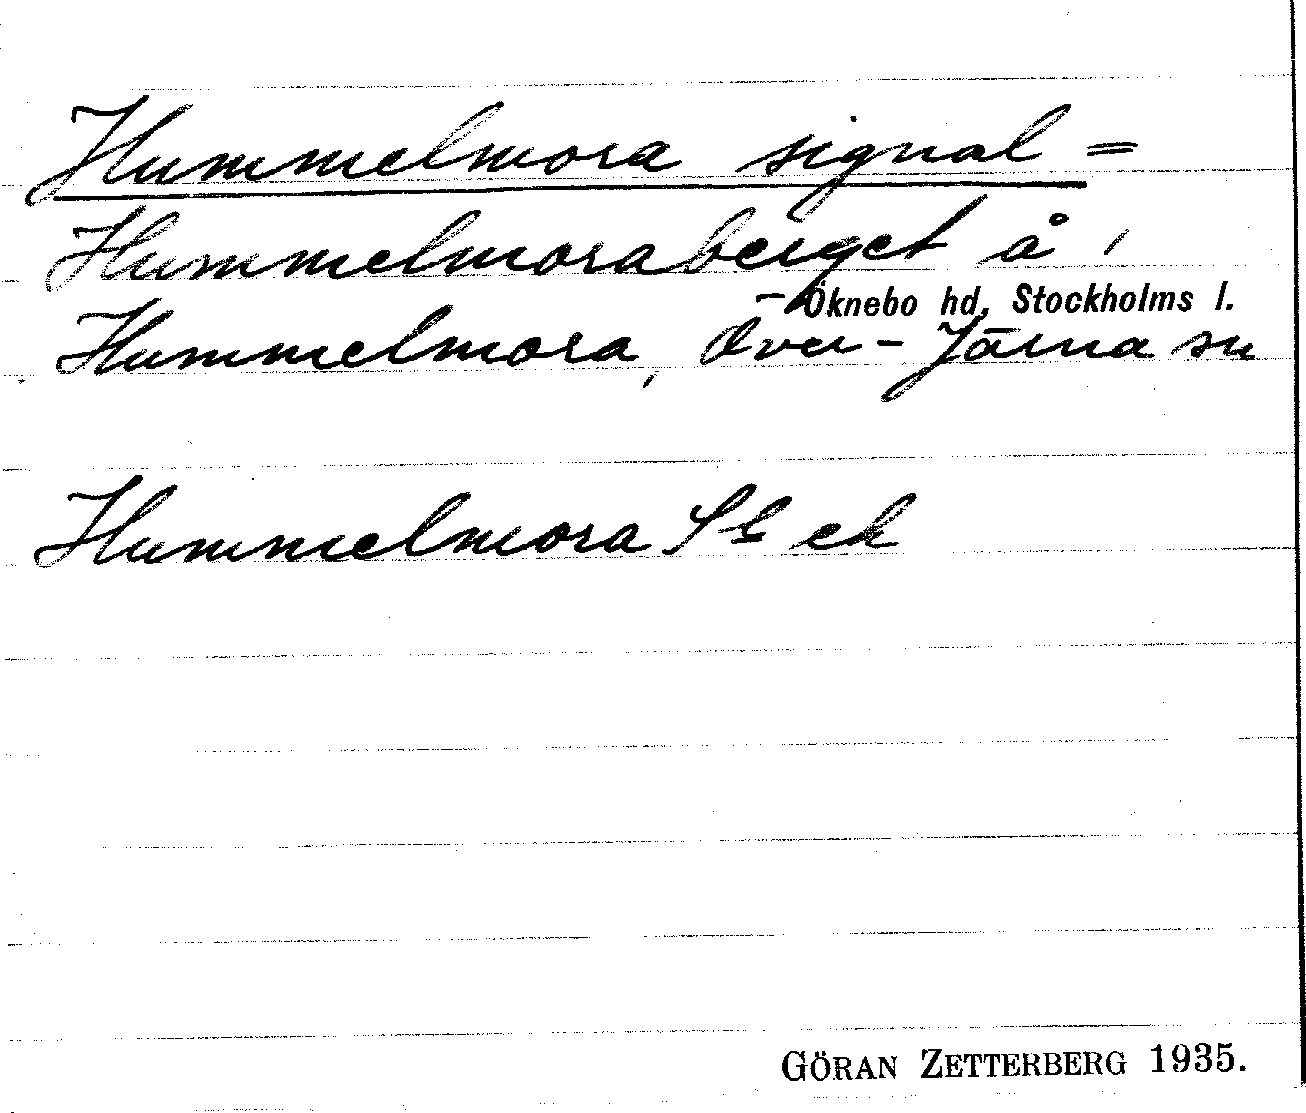 Hummelmora signal =
Hummelmoraberget å 1
Öknebo hd, Stockholms l.
Hummelmora, Över-Järna sn
Hummelmora ek
GÖRAN ZETTERBERG 1935.